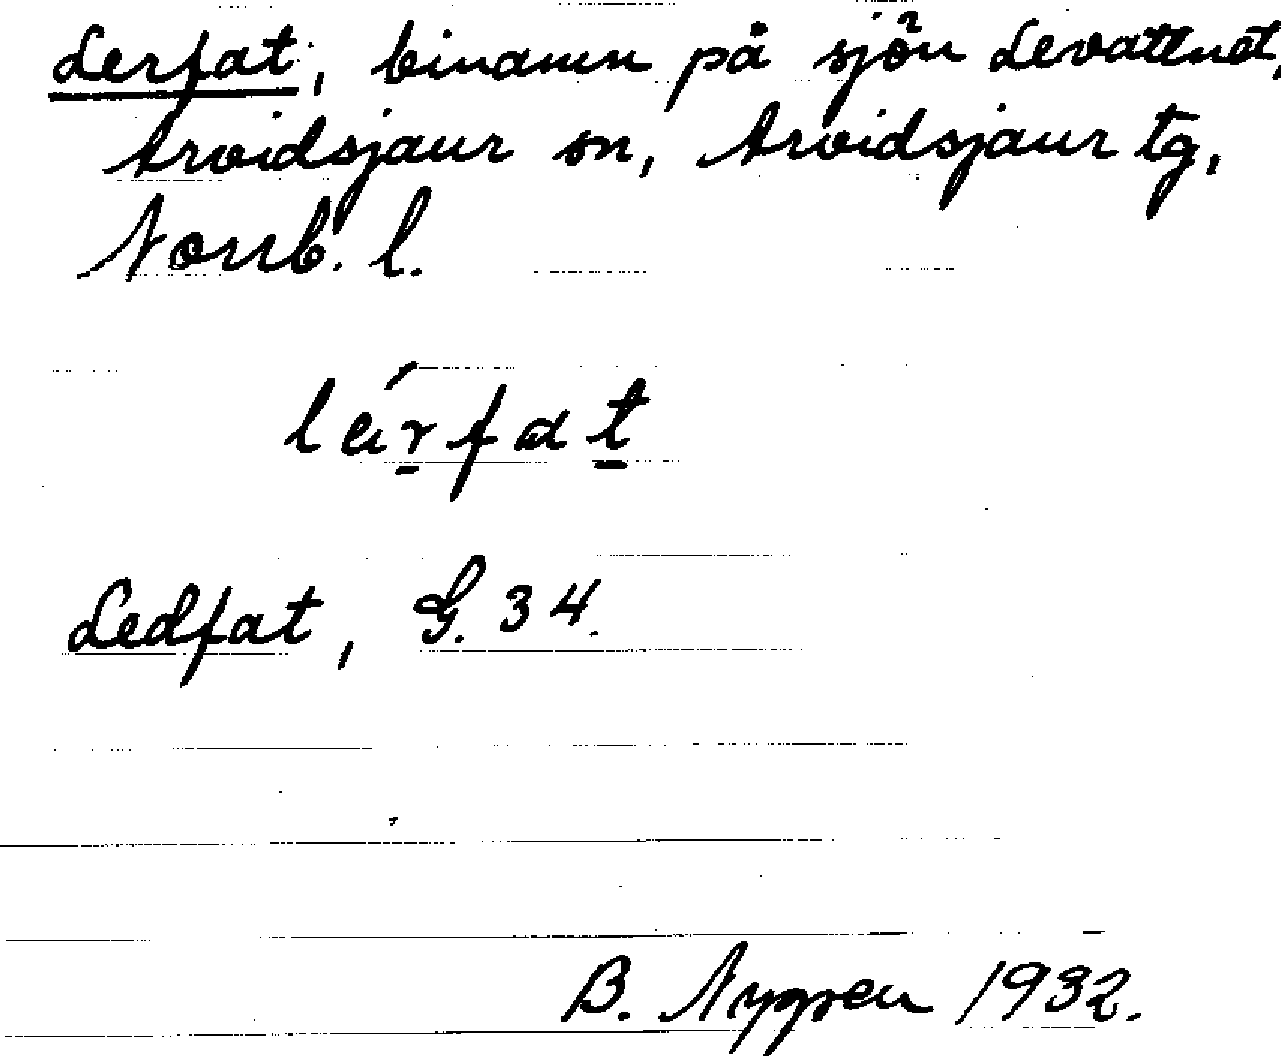 Lerfat, binamn på sjön Levattnet,
Arvidsjaur sn, Arvidsjaur tg,
Norrb. l.
Ledfat, G. 34.
B. Nygren 1932.